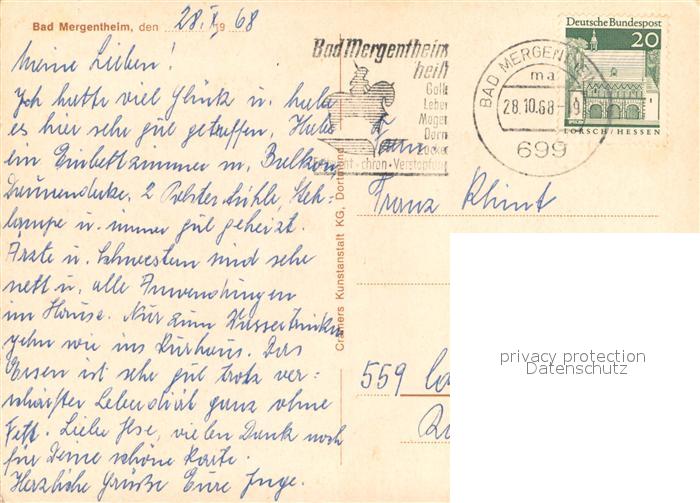 Bad Mergentheim, den 28.X.1968
Meine Lieben!
Ich hatte viel Glück u. habe
es hier sehr gut getroffen. Habe
ein Einbettzimmer m. Balkon,
Daunendecke, 2 Polsterstühle, Steh-
lampe u. immer gut geheizt.
Ärzte u. Schwestern sind sehr
nett u. alle Anwendungen
im Hause. Nur zum Wassertrinken
gehn wir ins Kurhaus. Das
Essen ist sehr gut trotz ver=
schärfter Leberdiät ganz ohne
Fett. Liebe Ilse, vielen Dank noch
für Deine schöne Karte.
Herzliche Grüße Eure Inge.
Cramers Kunstanstalt KG, Dortmund
Bad Mergentheim
heilt
Galle
Leber
Magen
Darm
Zucker
chron. Verstopfung
BAD MERGENTHEIM
ma
28.10.68-19
699
Deutsche Bundespost
20
LORSCH/HESSEN
Fam.
Franz Klint
559
privacy protection
Datenschutz